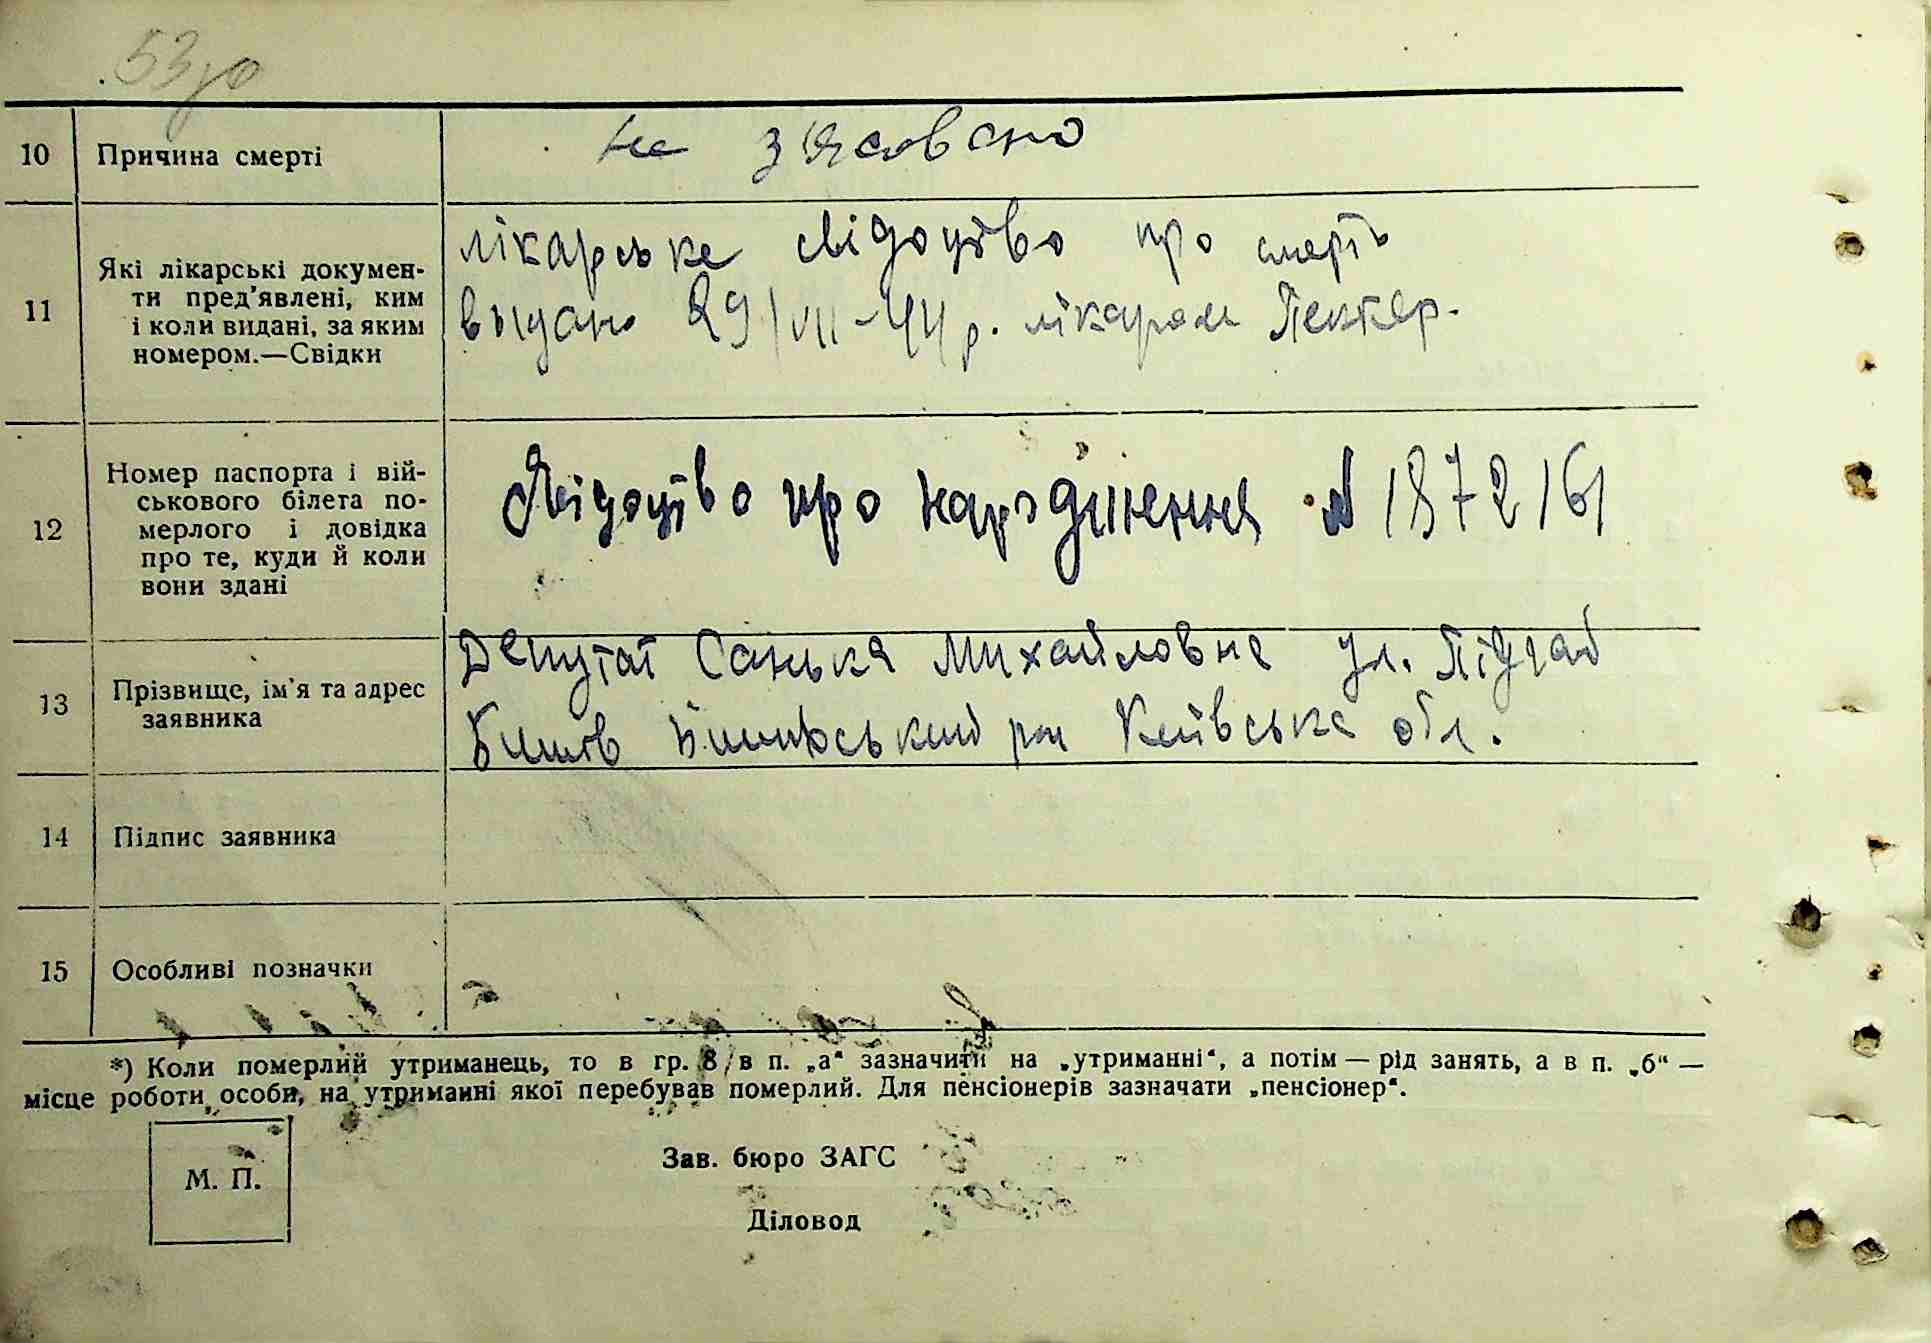 53
10 Причина смерті не з'ясовано
11 Які лікарські докумен-
ти пред'явлені, ким
і коли видані, за яким
номером.—Свідки
лікарське свідоцтво про смерть
выдано 29/VII-44р. лікаром
12 Номер паспорта і вій-
ськового білета по-
мерлого і довідка
про те, куди й коли
вони здані
свідоцтво про народження № 187216
13 Прізвище, ім'я та адрес
заявника
Депутат Санька Михайловна ул.
Київська обл.
14 Підпис заявника
15 Особливі позначки
*) Коли померлий утриманець, то в гр. 8 в п. „а“ зазначити на „утриманні“, а потім — рід занять, а в п. „б“ —
місце роботи особи, на утриманні якої перебував померлий. Для пенсіонерів зазначати „пенсіонер“.
М. П.
Зав. бюро ЗАГС
Діловод